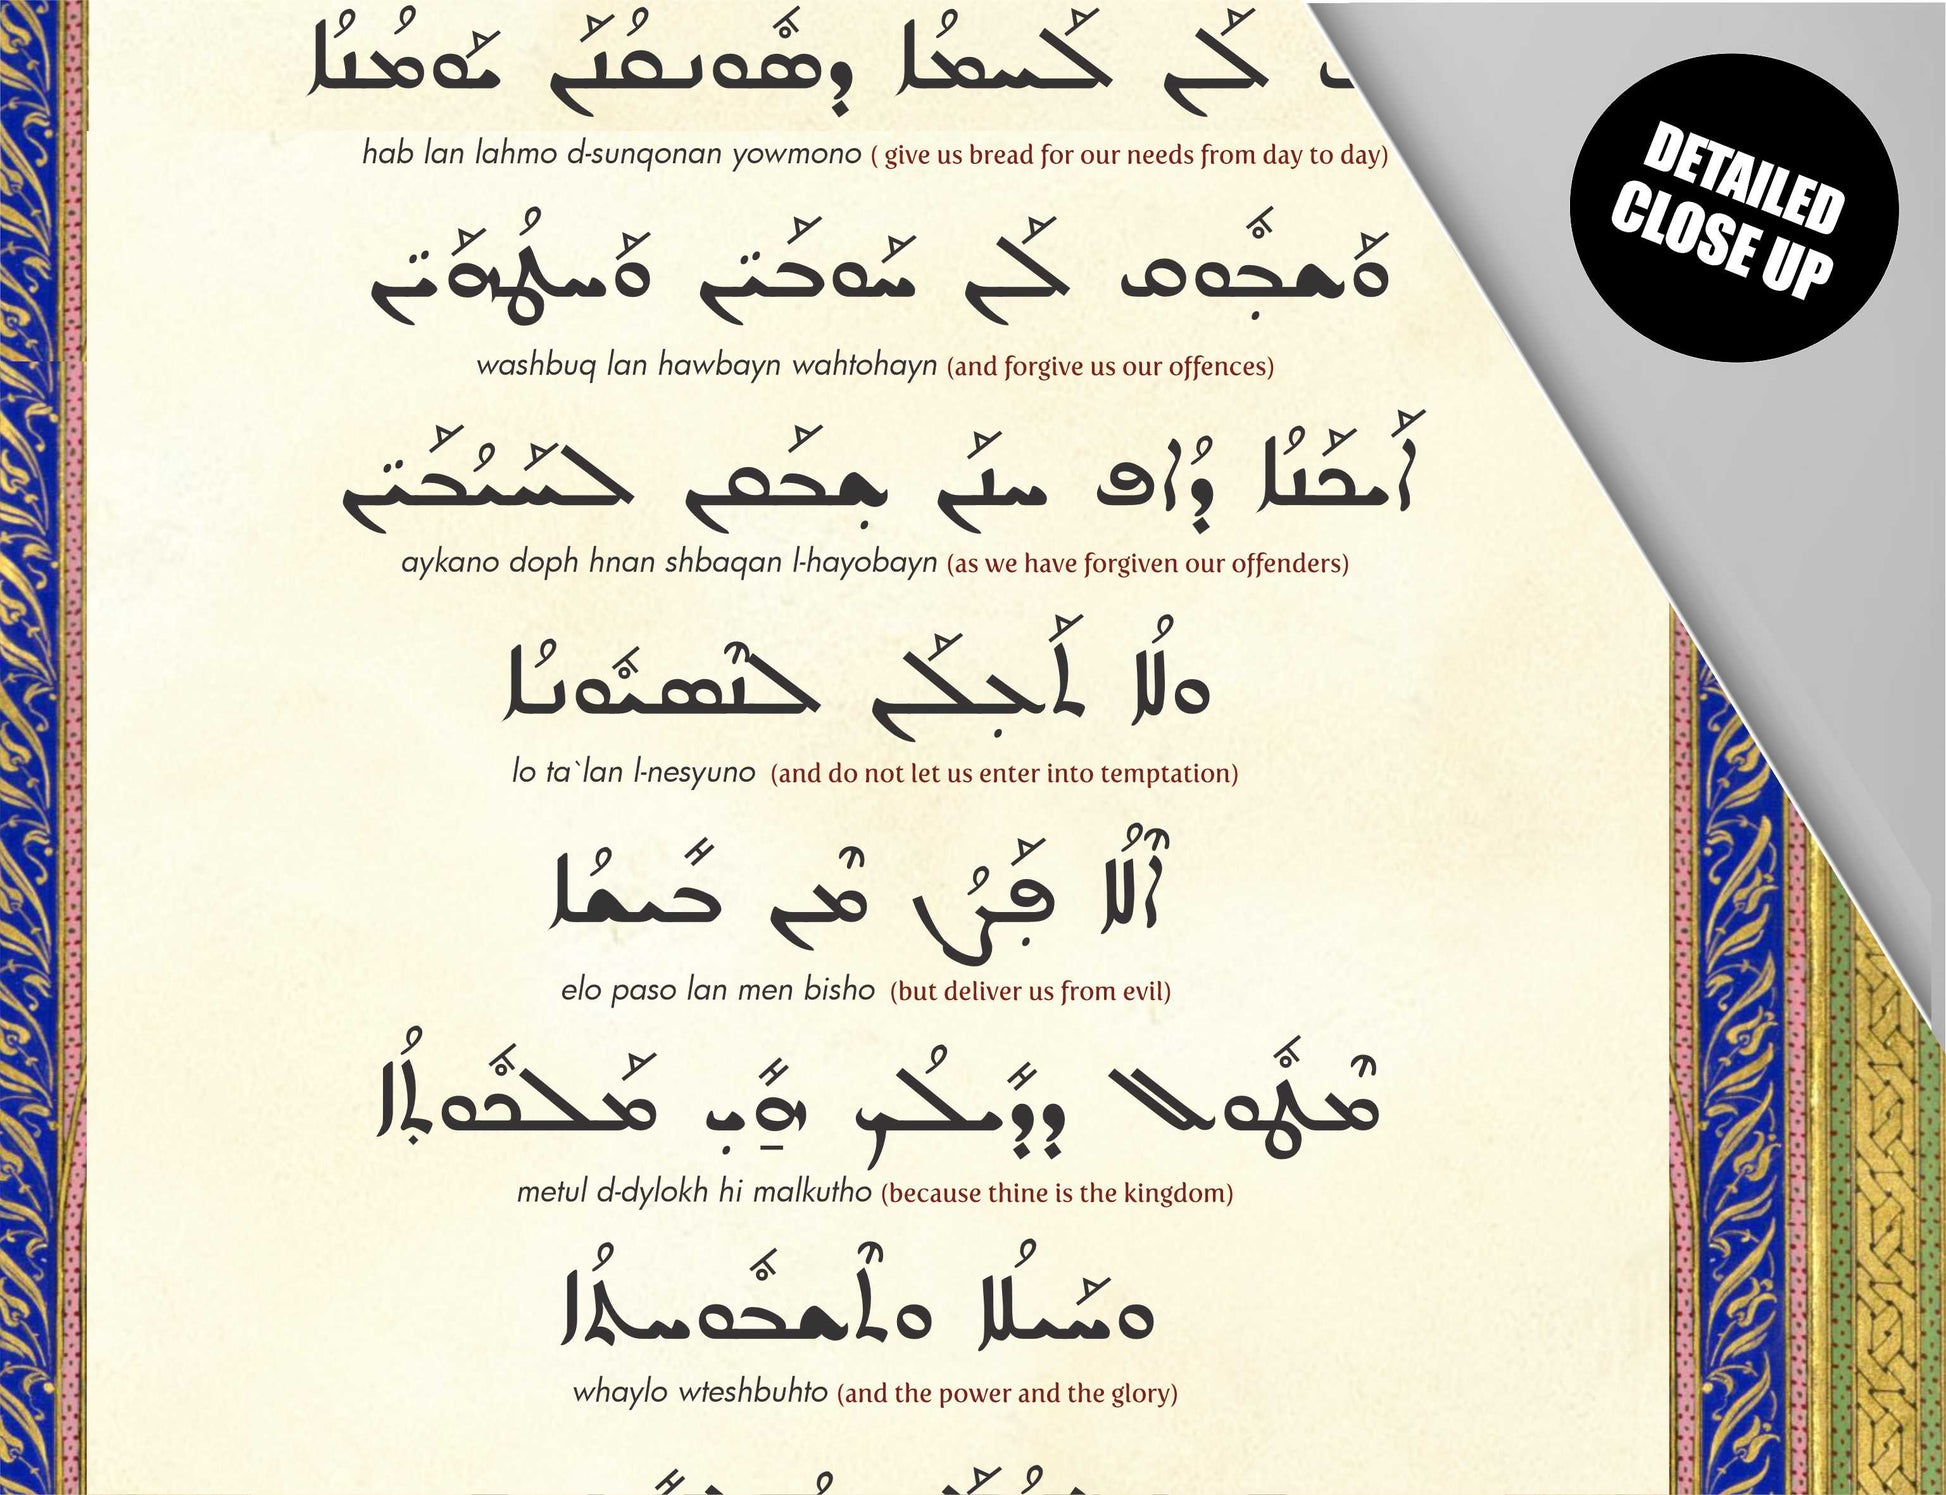 ܠܰܢ ܠܰܚܡܳܐ ܕ݁ܣܽܘܢܩܳܢܰܢ ܝܰܘܡܳܢܳܐ
hab lan lahmo d-sunqonan yowmono ( give us bread for our needs from day to day)
ܘܰܫܒ݂ܽܘܩ ܠܰܢ ܚܰܘܒܰܝ̈ܢ ܘܰܚܛܳܗܰܝ̈ܢ
washbuq lan hawbayn wahtohayn (and forgive us our offences)
ܐܰܝܟܰܢܳܐ ܕ݁ܳܐܦ ܚܢܰܢ ܫ݂ܒܰܩܢ ܠܚܰܝܳܒܰܝ̈ܢ
aykano doph hnan shbaqan l-hayobayn (as we have forgiven our offenders)
ܘܠܳܐ ܬܰܥ݂ܠܰܢ ܠܢܶܣܝܽܘܢܳܐ
lo ta`lan l-nesyuno (and do not let us enter into temptation)
ܐܶܠܳܐ ܦ݂ܰܨܳܢ ܡܶܢ ܒܺܝܫܳܐ
elo paso lan men bisho (but deliver us from evil)
ܡܶܛܽܘܠ ܕ݁ܕ݁ܺܝܠܳܟ ܗ̱ܺܝ݂ ܡܰܠܟܽܘܬ݂ܳܐ
metul d-dylokh hi malkutho (because thine is the kingdom)
ܘܚܰܝܠܳܐ ܘܬܶܫܒܽܘܚܬܳܐ
whaylo wteshbuhto (and the power and the glory)
DETAILED
CLOSE UP